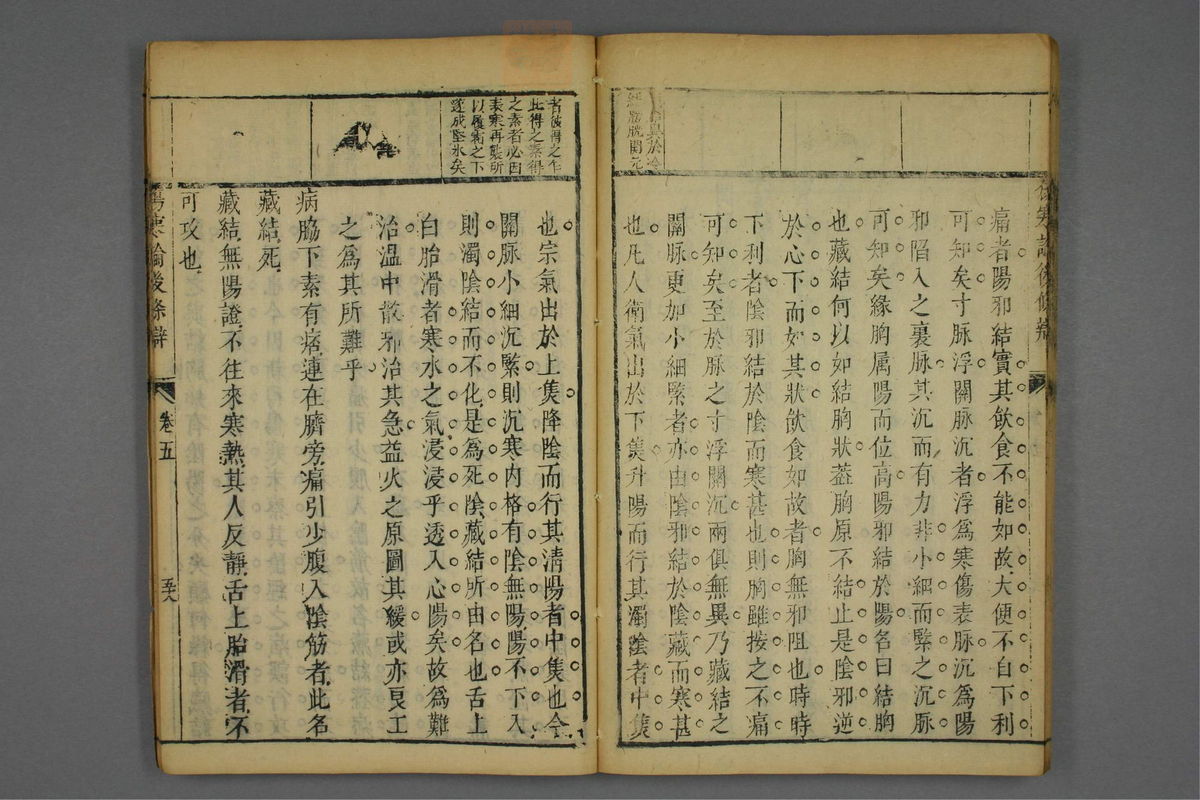 傷寒論後條辯
異於冷
結膀胱關元
痛者陽邪結實其飲食不能如故大便不自下利
可知矣寸脉浮關脉沉者浮爲寒傷表脉沉爲陽
邪陷入之裏脉其沉而有力非小細而緊之沉脉
可知矣緣胸属陽而位高陽邪結於陽名曰結胸
也藏結何以如結胸狀葢胸原不結止是陰邪逆
於心下而如其狀飲食如故者胸無邪阻也時時
下利者陰邪結於陰而寒甚也則胸雖按之不痛
可知矣至於脉之寸浮關沉兩俱無異乃藏結之
關脉更加小細緊者亦由陰邪結於陰藏而寒甚
也凡人衛氣出於下焦升陽而行其濁陰者中焦
者彼得之乍
此得之素得
之素者必因
表寒再襲所
以履霜之下
遂成堅氷矣
也宗氣出於上焦降陰而行其淸陽者中焦也今
關脉小細沉緊則沉寒内格有陰無陽陽不下入
則濁陰結而不化是爲死陰藏結所由名也舌上
白胎滑者寒水之氣浸浸乎透入心陽矣故爲難
治溫中散邪治其急益火之原圖其緩或亦良工
之爲其所難乎
病脇下素有痞連在臍旁痛引少腹入陰筋者此名
藏結死
藏結無陽證不往來寒熱其人反靜舌上胎滑者不
可攻也
傷寒論後條辯
卷五
五十八